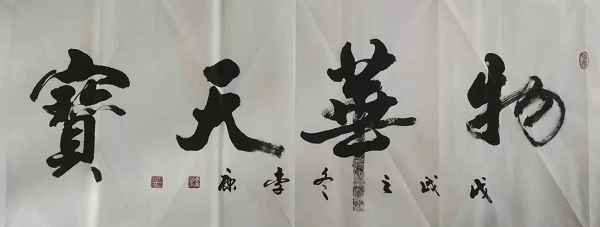 物華天寳
戊戌立冬李康